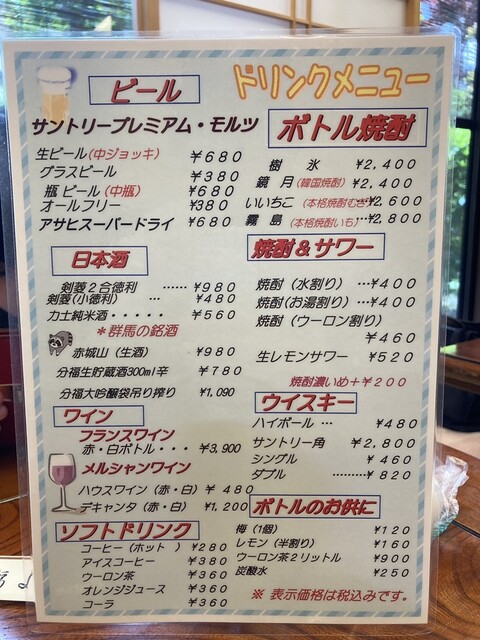 ドリンクメニュー
ビール
サントリープレミアム・モルツ
生ビール(中ジョッキ) ￥680
グラスビール ￥380
瓶ビール(中瓶) ￥680
オールフリー ￥380
アサヒスーパードライ ￥680
日本酒
剣菱2合徳利 ……￥980
剣菱(小徳利) … ￥480
力士純米酒・・・・・ ￥560
＊群馬の銘酒
赤城山(生酒) ￥980
分福生貯蔵酒300ml辛 ￥780
分福大吟醸袋吊り搾り ￥1,090
ワイン
フランスワイン
赤・白ボトル・・・￥3,900
メルシャンワイン
ハウスワイン(赤・白)￥480
デキャンタ(赤・白) ￥1,200
ソフトドリンク
コーヒー(ホット ) ￥280
アイスコーヒー ￥380
ウーロン茶 ￥360
オレンジジュース ￥360
コーラ ￥360
ボトル焼酎
樹 氷 ￥2,400
鏡 月(韓国焼酎) ￥2,400
いいちこ (本格焼酎むぎ)￥2,600
霧 島(本格焼酎いも) …￥2,800
焼酎＆サワー
焼酎(水割り) …￥400
焼酎(お湯割り) …￥400
焼酎(ウーロン割り)
￥460
生レモンサワー ￥520
焼酎濃いめ＋￥200
ウイスキー
ハイボール … ￥480
サントリー角 ￥2,800
シングル ￥460
ダブル ………￥820
ボトルのお供に
梅(1個) ￥120
レモン(半割り) ￥160
ウーロン茶2リットル ￥900
炭酸水 ￥250
※ 表示価格は税込みです。